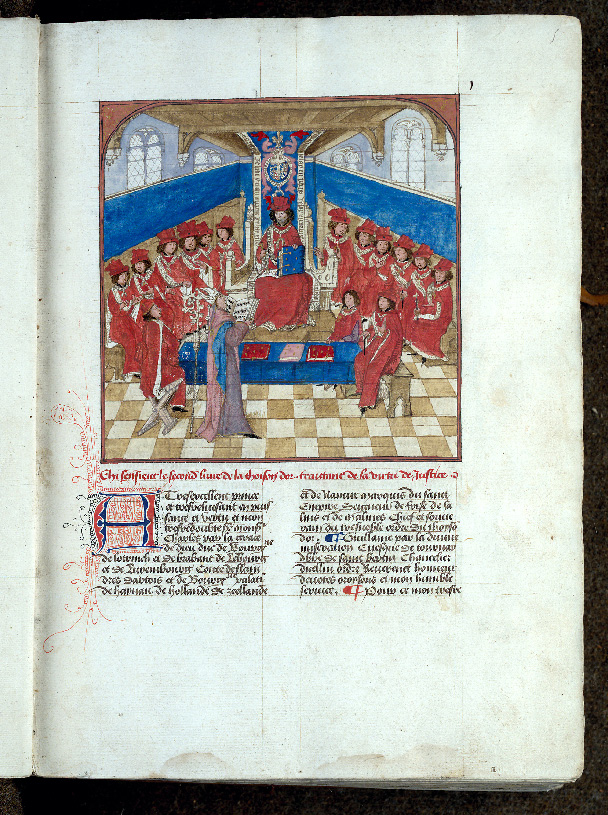 Chi sensieut le second livre de la thoison dor . traittant de la vertu de Justice .
Tresexcellent prince
et tresvertueux mon
tresredoubte sr monsr
Charles par la grace
de dieu duc de Bourgne
de lothrich et de brabant de Lembourg
et de Luxembourg Conte de flan
dres dartois et de Bourgne palatin
de haynau de hollande de zeellande
et de Namur marquis du saint
Empire Seigneur de frise de sa
lins et de malines Chief et souve
rain du tresnoble ordre du thoison
dor . Guillaume par la divine
miseration Evesque de tournay
abbe de saint bertin Chancelier
dicellui ordre Reverence honneur
devotes orisons et mon humble
service . Pour ce mon tresre